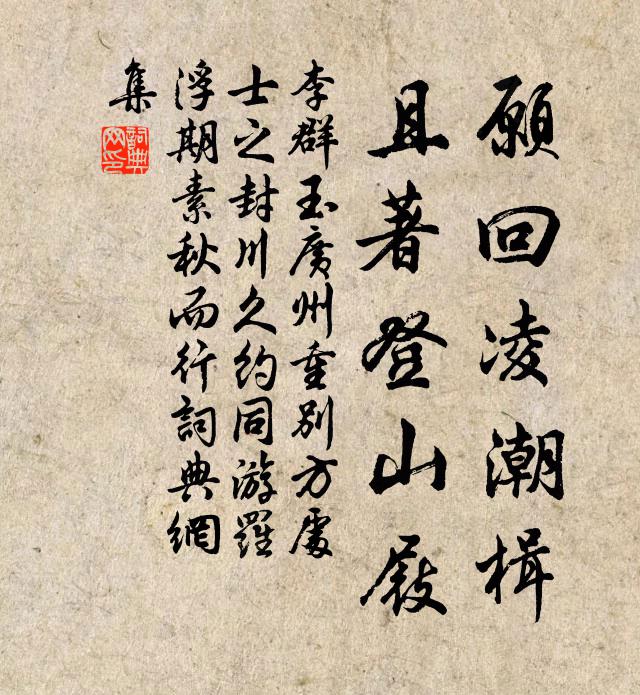 願回凌潮楫
且著登山屐
李群玉廣州重別方處
士之封川久約同游羅
浮期素秋而行詞典網
集
詞典網印